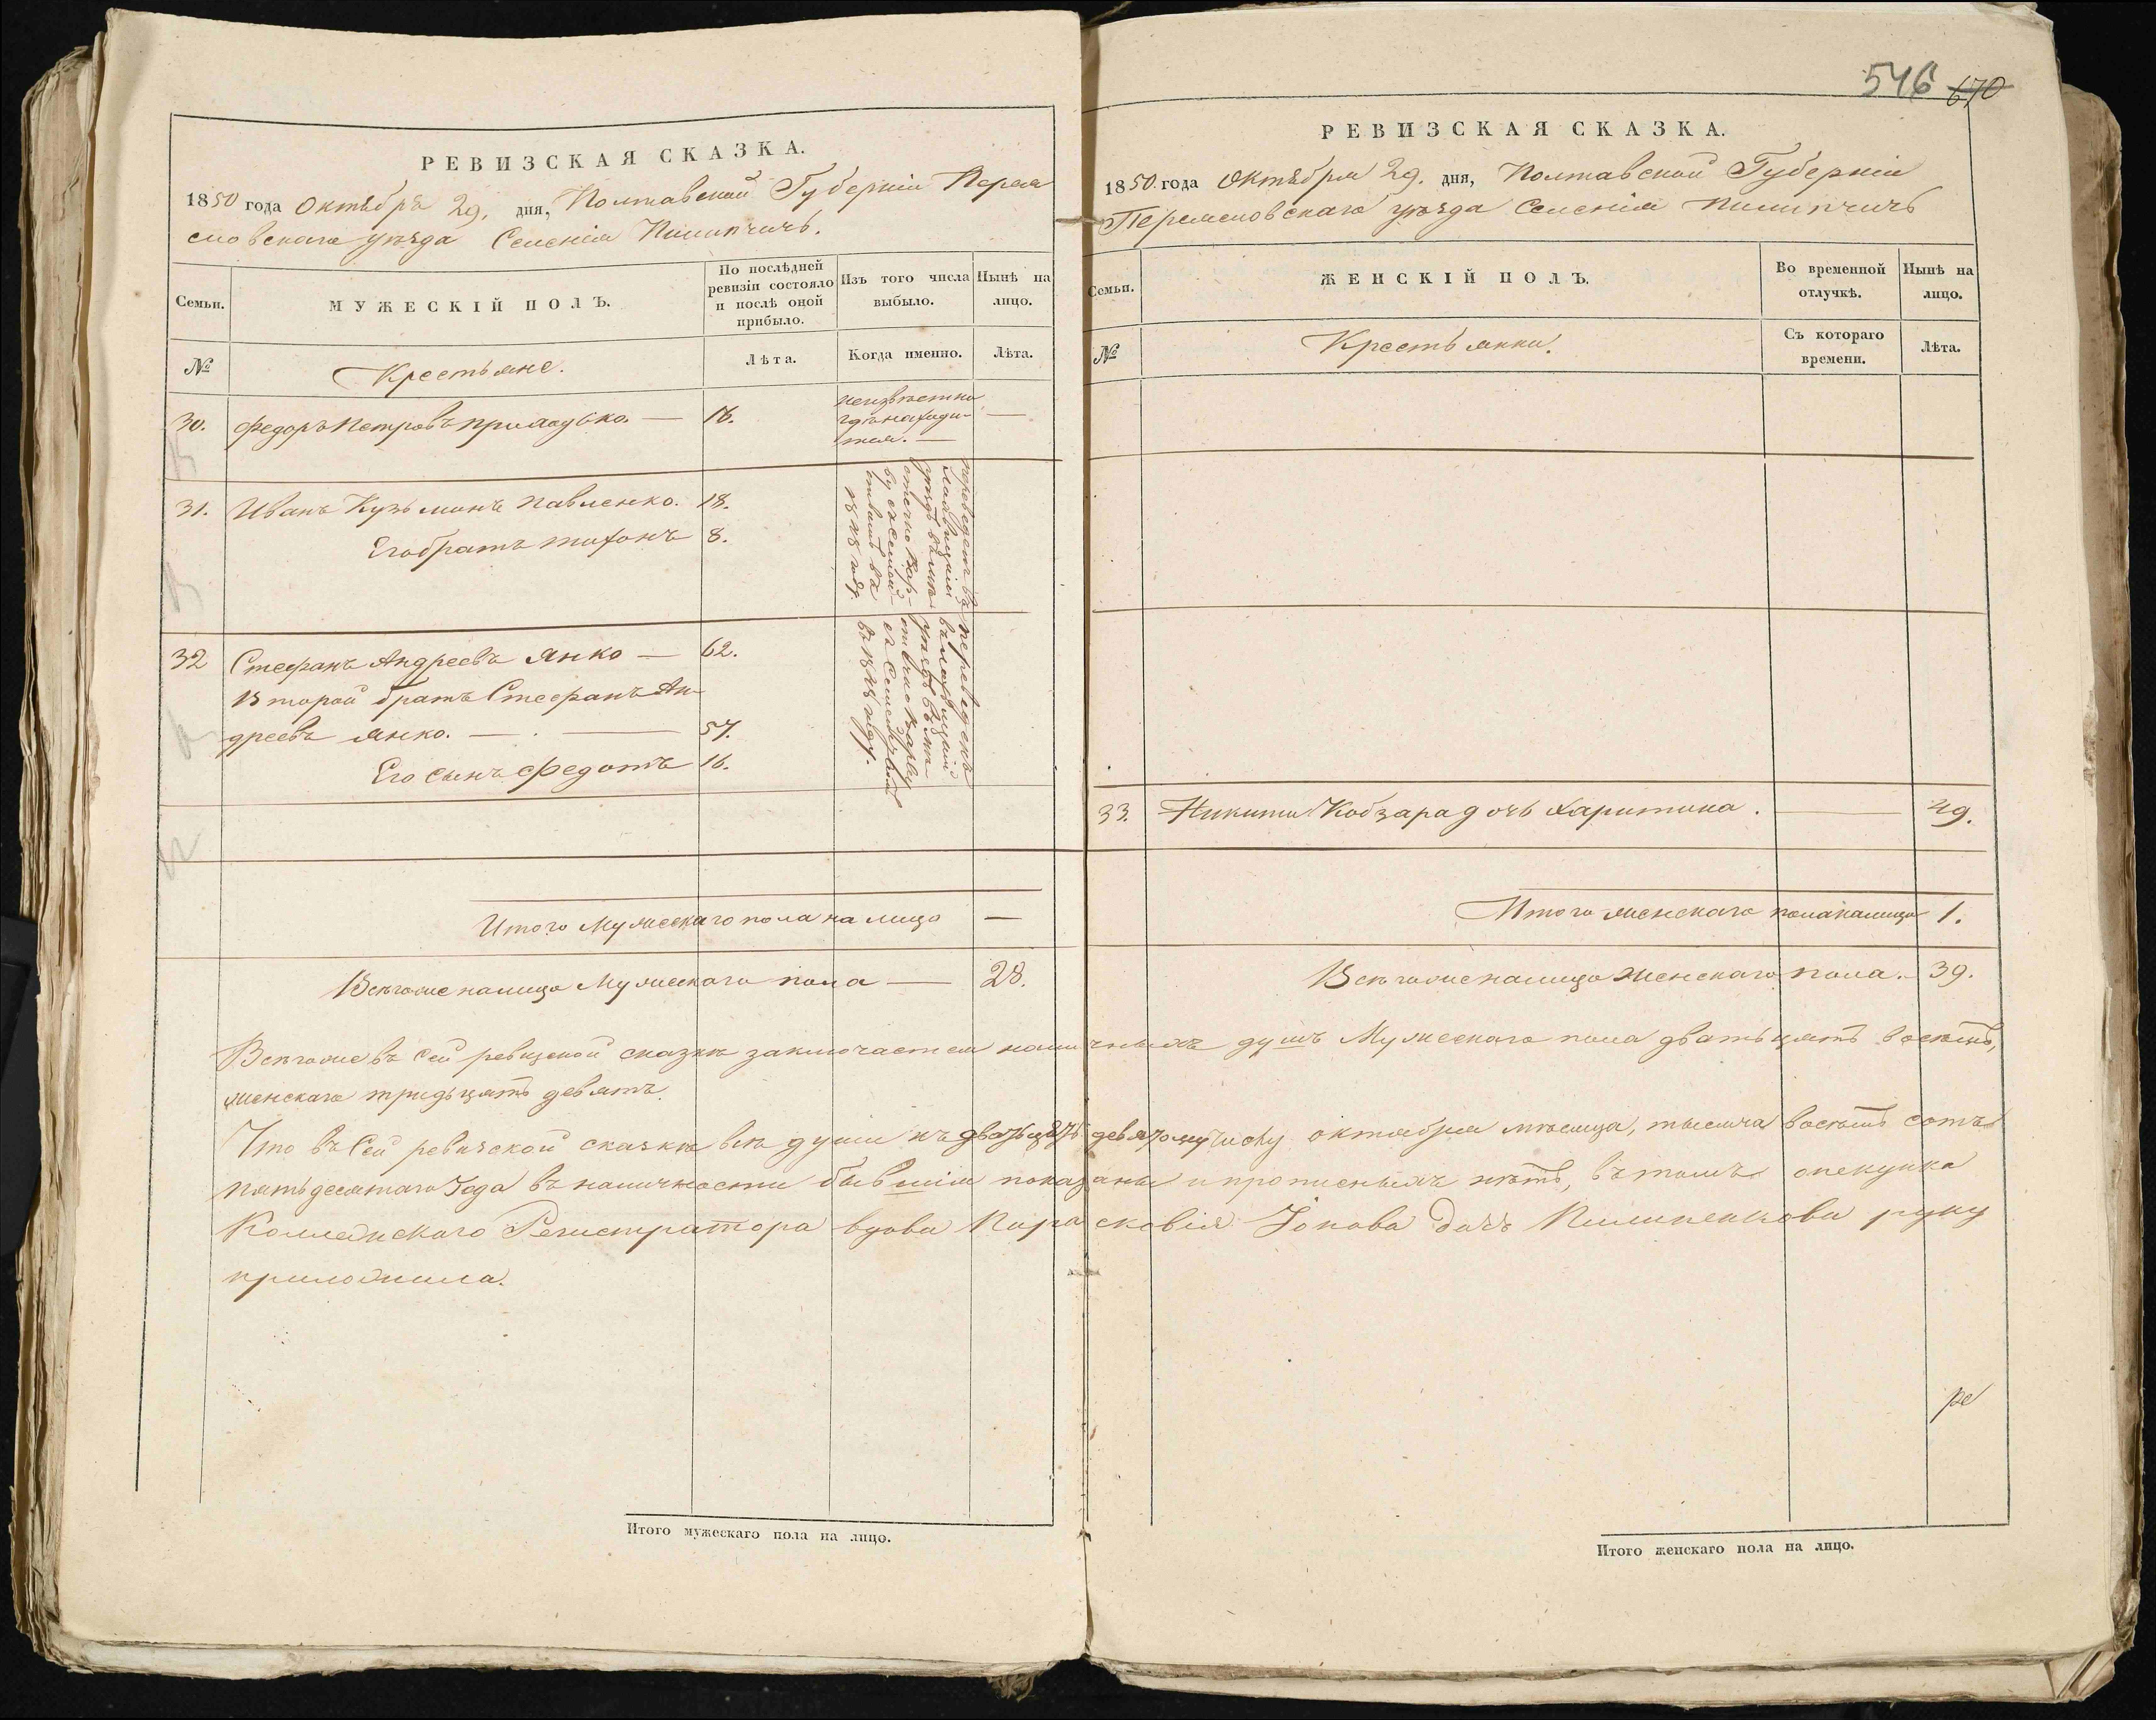 546 670
РЕВИЗСКАЯ СКАЗКА.
1850 года Октября 29. дня, Полтавской Губерніи Перея
словскаго уѣзда Селенія Пилипчичь.
Семьи.
МУЖЕСКІЙ ПОЛЪ.
По послѣдней ревизіи состояло и послѣ оной прибыло.
Изъ того числа выбыло.
Нынѣ на лицо.
№
Крестьяне.
Лѣта.
Когда именно.
Лѣта.
30. Федоръ Петровъ — 16. неизвѣстно
гдѣ находи-
тся. — —
31. Иванъ Кузьминъ Павленко. 18.
Его братъ Тихонъ 8.
переведен въ
уѣздъ въ
въ
32 Стефанъ Андреевъ Янко — 62.
Второй братъ Стефанъ Ан-
дреевъ Янко. — 57.
Его сынъ Федотъ 16.
переведенъ
уѣздъ въ
году.
Итого Мужескаго пола на лицо —
Всѣго же налицо Мужескаго пола — 28.
РЕВИЗСКАЯ СКАЗКА.
1850 года Октября 29. дня, Полтавской Губерніи
Переясловскаго уѣзда Селенія Пилипчичь
Семьи.
ЖЕНСКІЙ ПОЛЪ.
Во временной отлучкѣ.
Нынѣ на лицо.
№
Крестьянки.
Съ котораго времени.
Лѣта.
33. Никиты Кобзара дочь Харитина. — 49.
Итого женскаго пола налицо 1.
Всѣго же налицо женскаго пола. 39.
Всѣго же въ сей ревизской сказкѣ заключается наличныхъ душъ Мужескаго пола дватьцать восѣмь,
женскаго тридьцать девять.
Что въ сей ревизской сказкѣ всѣ души къ двадьцать девятому числу октября мѣсяца, тысяча восѣмь сотъ
пятьдесятаго года въ наличности бывшія показаны и прописныхъ нѣтъ, въ томъ опекунка
Коллежскаго Регистратора вдова Парасковія дочь Пилипенкова руку
приложила.
Итого мужескаго пола на лицо.
Итого женскаго пола на лицо.